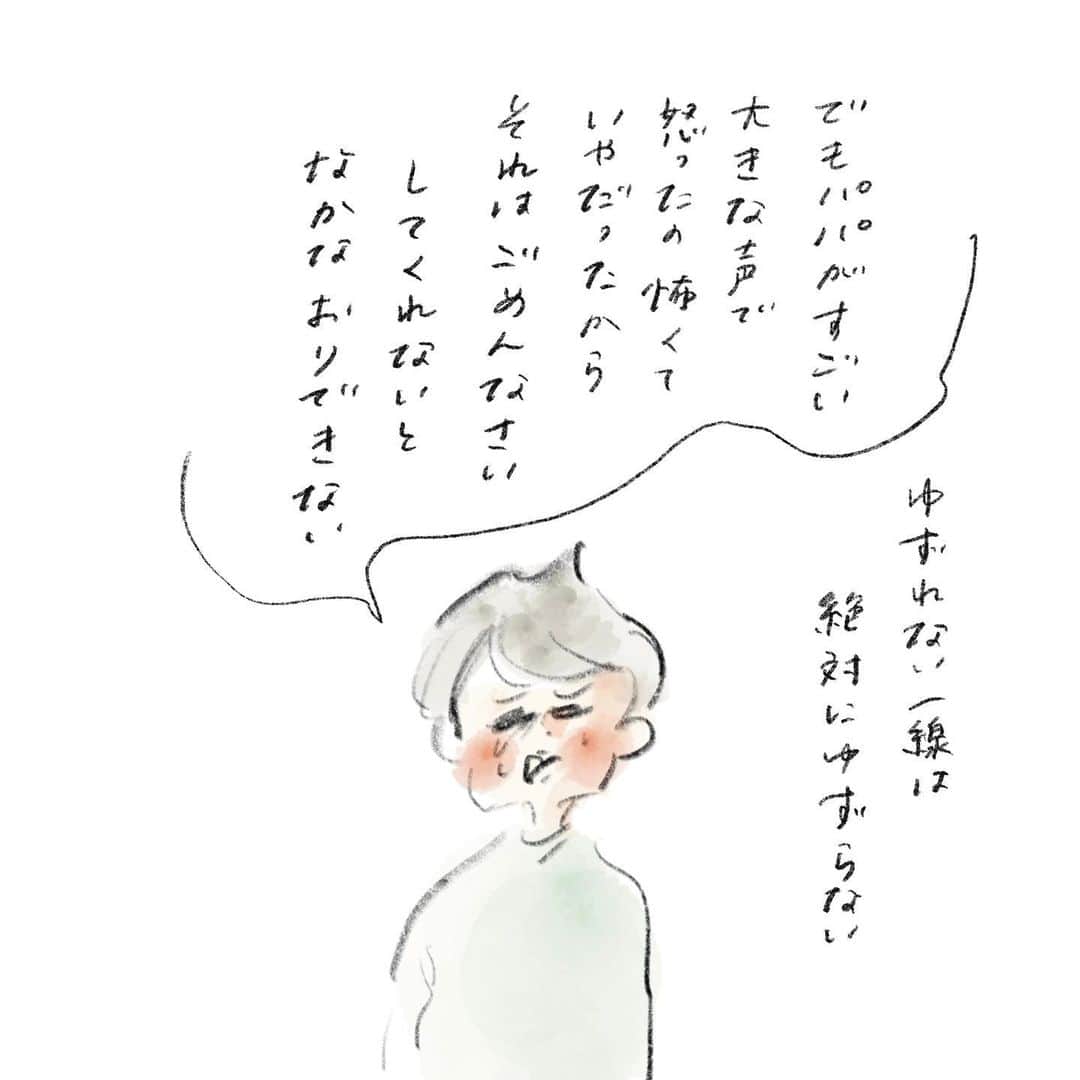 でもパパがすごい
大きな声で
怒ったの怖くて
いやだったから
それはごめんなさい
してくれないと
なかなおりできない
ゆずれない一線は
絶対にゆずらない